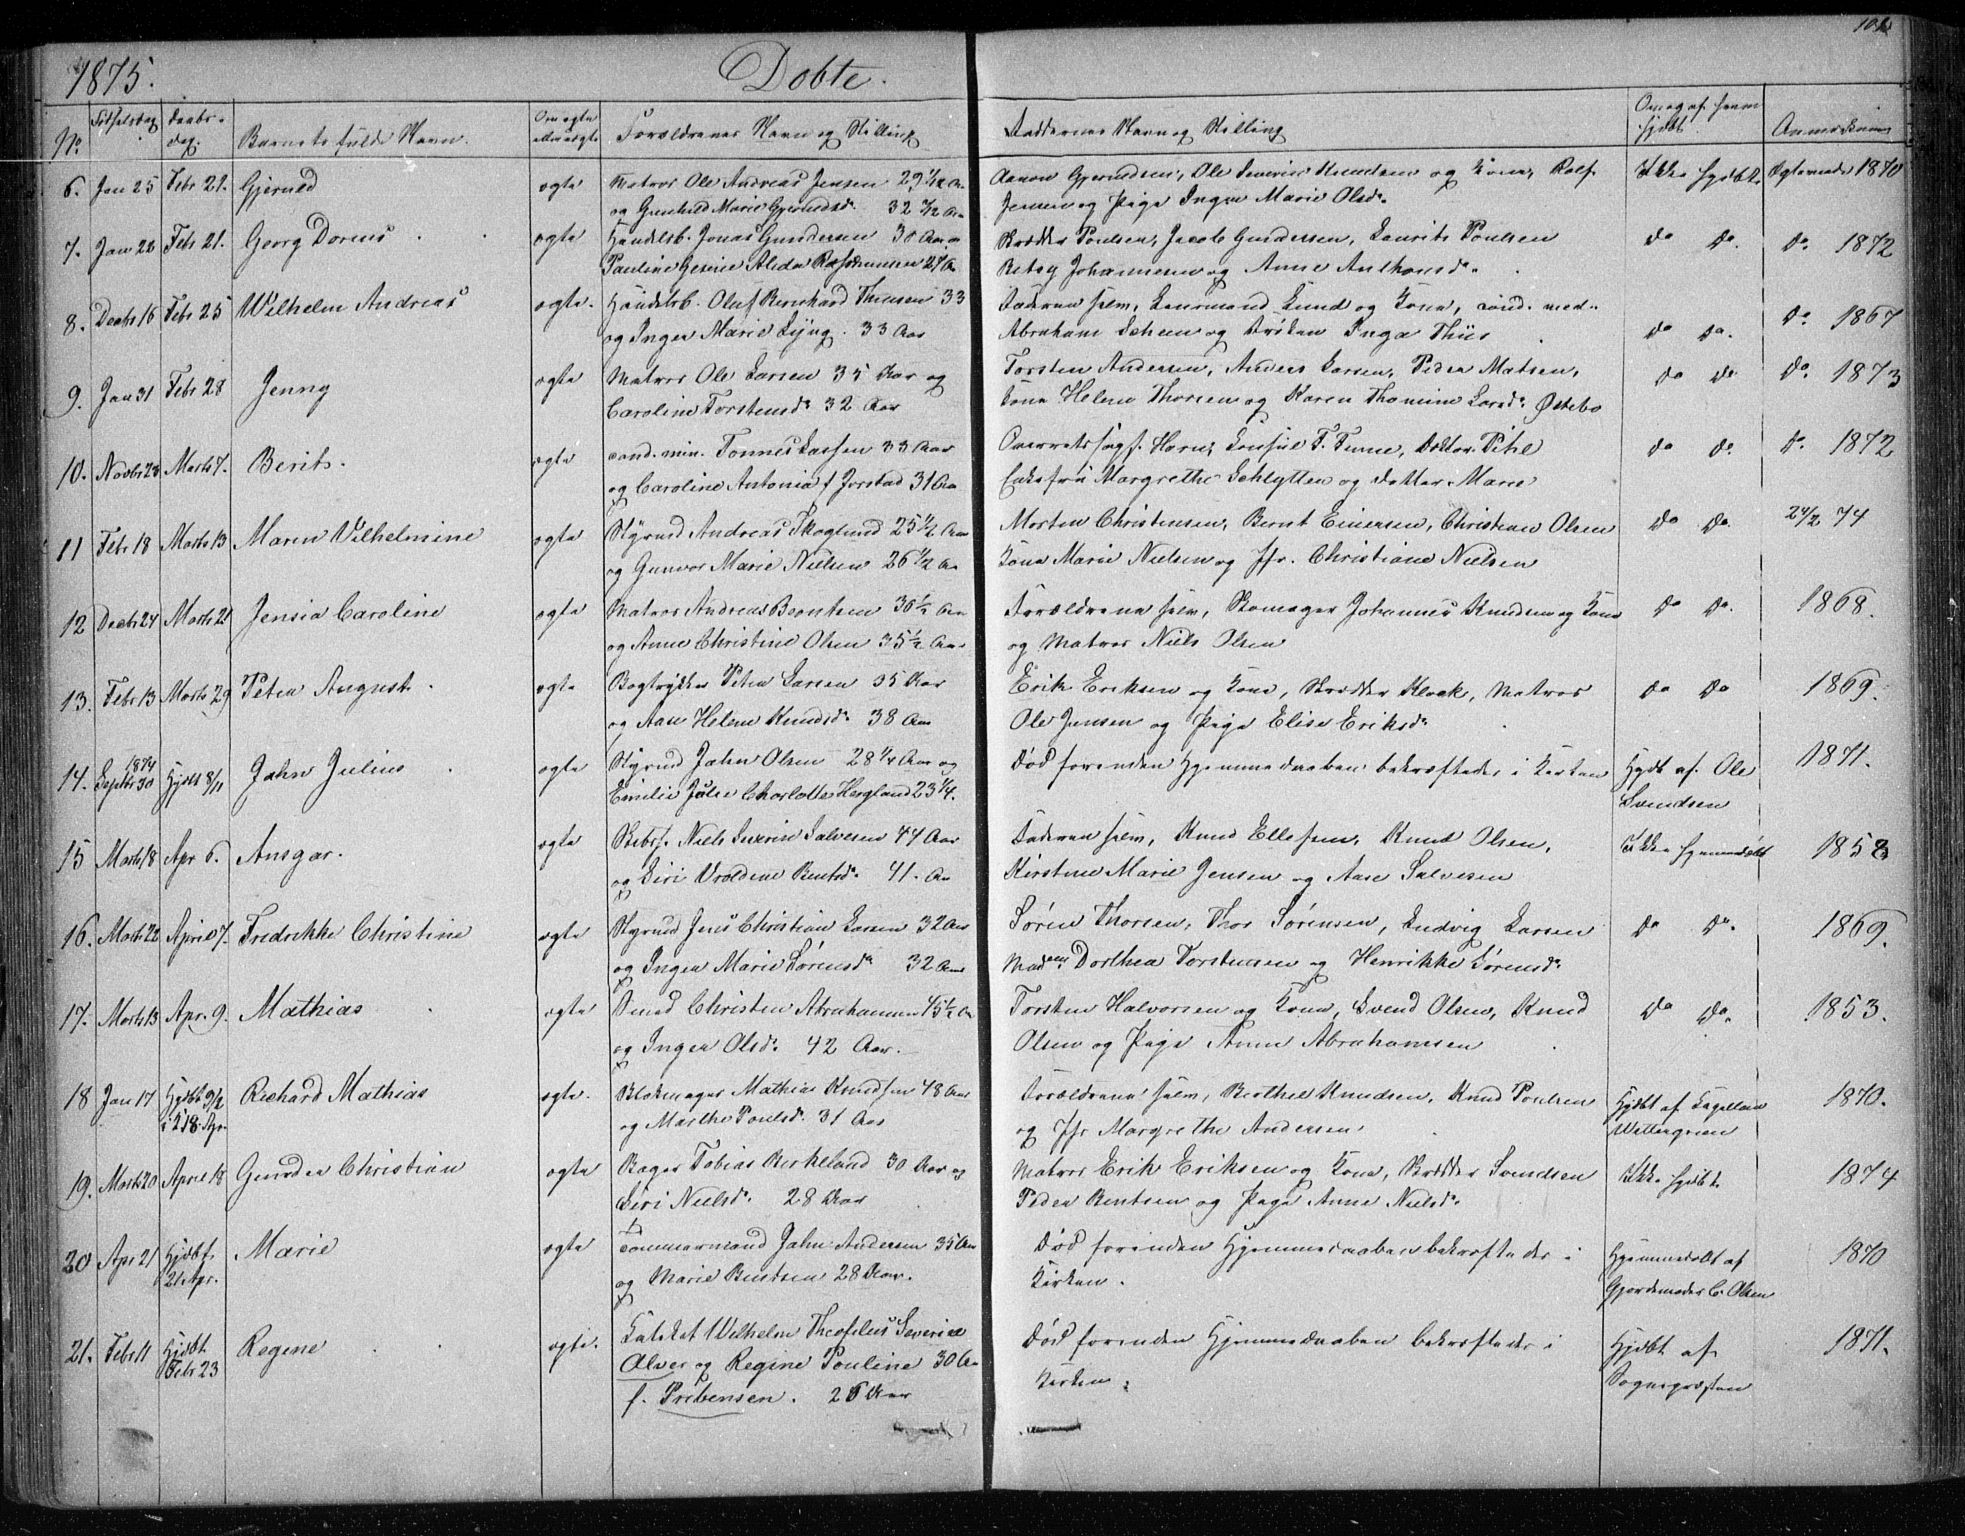 102
1875.
Døbte.
No.
Fødselsdag
Daabsdag.
Barnets fulde Navn.
Om ægte eller uægte
Forældrenes Navn og Stilling
Faddernes Navn og Stilling
Om og af hvem hjdbt.
Anmærkning
6. Jan 25 Febr 21. Gjerulf ægte Matros Ole Andreas Jensen 29 Aar
og Gunhild Marie Gjeruldsdr. 32 1/2 Aar
Aanon Gjeruldsen, Ole Severin Knudsen og Kone, Rolf
Jensen og Pige Inger Marie Olsdr.
Ikke hjdbt. Ægteviede 1870
7. Jan 22 Febr 21. Georg Dorius ægte Handelsb. Jonas Gundersen 30 Aar og
Pauline Gesine Alida Rasmussen 27 Aar
Skrædder Poulsen, Jacob Gundersen, Laurits Poulsen
Betsy Johannesen og Anne Anthonsdr.
do do. do. 1872
8. Decbr 16 Febr 25 Wilhelm Andreas ægte. Handelsb. Oluf Bernhard Thiesen 33
og Inger Marie Lyng. 33 Aar
Faderen selv, Lensmand Lund og Kone, cand. med.
Abraham Schem og Frøken Inga Thiis
do do. do. 1867
9. Jan 31 Febr 28 Jenny ægte Matros Ole Larsen 35 Aar og
Caroline Torstensdr. 32 Aar
Torsten Andersen, Anders Larsen, Peder Matsen,
Kone Helene Thorsen og Karen Thomine Larsdr. Østebø
do do do. 1873
10. Novbr 23 Marts 7. Berit. ægte cand. min. Tønnes Larsen 33 Aar
og Caroline Antonia f Jorstad 31 Aar
Overretssagf. Horn, Konsul F. Finne, Doktor Pihl
Enkefru Margrethe Schlytter og datter Marie
do do. do. 1872
11 Febr 18 Marts 13 Maren Vilhelmine ægte Styrmd Andreas Skoglund 25 1/2 Aar
og Gunvor Marie Nielsen 26 1/2 Aar
Morten Christensen, Bernt Einersen, Christian Olsen
Kone Marie Nielsen og Jfr. Christiane Nielsen
do do. 24/2 74
12 Decbr 24 Marts 21 Jensia Caroline ægte Matros Andreas Berntsen 36 1/2 Aar
og Anne Christine Olsen 35 1/2 Aar
Forældrene selv, Skomager Johannes Knudsen og Kone
og Matros Niels Olsen
do do. 1868.
13. Febr 13 Marts 29 Peter August. ægte Bogtrykker Peter Larsen 35 Aar
og Ane Helene Knudsdr. 38 Aar
Erik Eriksen og Kone, Skrædder Klock, Matros
Ole Jensen og Pige Elise Eriksdr.
do do 1869.
14. 1874 Septbr 30 Hjdbt 8/11 John Julius ægte Styrmd John Olsen 28 1/4 Aar og
Emilie Julie Charlotte Hegland 23 1/4.
Død forinden Hjemmedaaben bekræftedes i Kirken
Hjdbt af Ole
Svendsen
1871.
15 Marts 18 Apr 6. Ansgar. ægte Skibsf. Niels Severin Salvesen 44 Aar
og Siri Vraldine Bentsdr. 41. Aar
Faderen selv, Knud Ellefsen, Knud Olsen,
Kirstine Marie Jensen og Aase Salvesen
Ikke hjemmedøbt 1858
16. Marts 22 April 7. Fredrikke Christine ægte Styrmd Jens Christian Larsen 32 Aar
og Inger Marie Sørensdr 32 Aar
Søren Thorsen, Thor Sørensen, Ludvig Larsen
Madam Dorthea Torstensen og Henrikke Sørensdr.
do do. 1869.
17. Marts 13 Apr. 9. Mathias ægte Smed Christen Abrahamsen 45 1/2 Aar
og Inger Olsdr. 42 Aar.
Torsten Halvorsen og Kone, Svend Olsen, Knud
Olsen og Pige Anne Abrahamsen
do do. 1853.
18 Jan 17 Hjdbt 9/2 i K 18. Apr. Richard Mathias ægte. Blokmager Mathias Knudsen 48 Aar
og Marthe Poulsdr. 31 Aar
Forældrene selv, Berthel Knudsen, Knud Poulsen
og Jfr Margrethe Andersen.
Hjdbt af Kapellan
Wettergreen
1870.
19. Marts 20 April 18 Gunder Christian ægte Bager Tobias Birkeland 30 Aar og
Siri Nielsdr. 28 Aar
Matros Erik Eriksen og Kone, Skrædder Svendsen
Peder Bentsen og Pige Anne Nielsdr.
Ikke hjdbt. 1874
20 Apr 21 Hjdbt 21 Apr. Marie ægte Tømmermand John Andersen 35 Aar
og Marie Bentsen 28 Aar.
Død forinden Hjemmedaaben bekræftedes i
Kirken.
Hjemmedøbt af
Gjordemoder C. Olsen
1870
21. Febr 11 Hjdbt Febr 23 Regine ægte. Kateket Wilhelm Theofilus Severin
Alver og Regine Pouline 30 Aar
f. Prebensen. 26 Aar
Død forinden Hjemmedaaben bekræftedes i
Kirken.
Hjdbt af
Sognepræsten
1871.